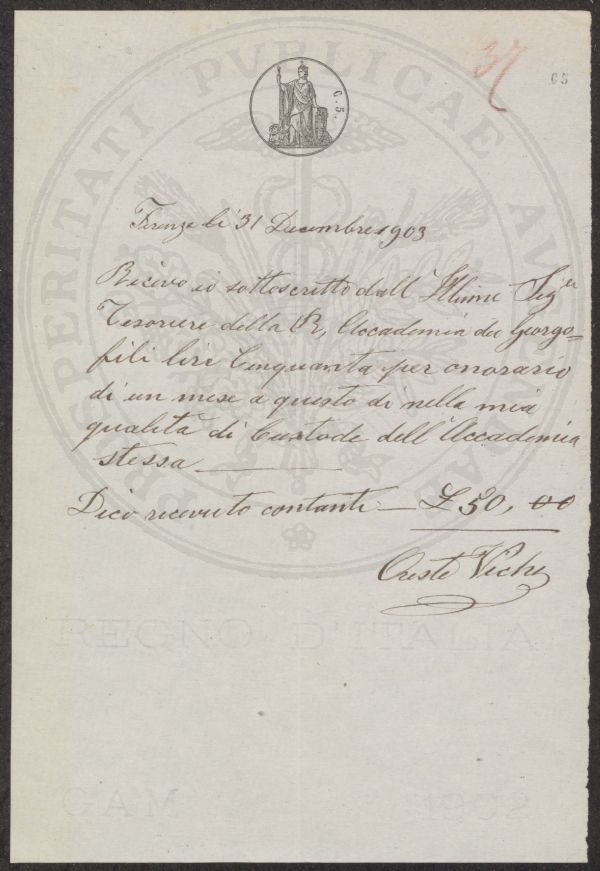 37
65
PROSPERITATI PVBLICAE AVGENDAE
C. 5.
Firenze li 31 Decembre 1903
Ricevo io sottoscritto dall' Illmo Sigre
Tesoriere della R. Accademia dei Georgo=
fili lire Cinquanta per onorario
di un mese a questo dì nella mia
qualità di Custode dell'Accademia
stessa
Dico ricevuto contanti — £ 50, 00
Oreste
REGNO D'ITALIA
GAM 1902